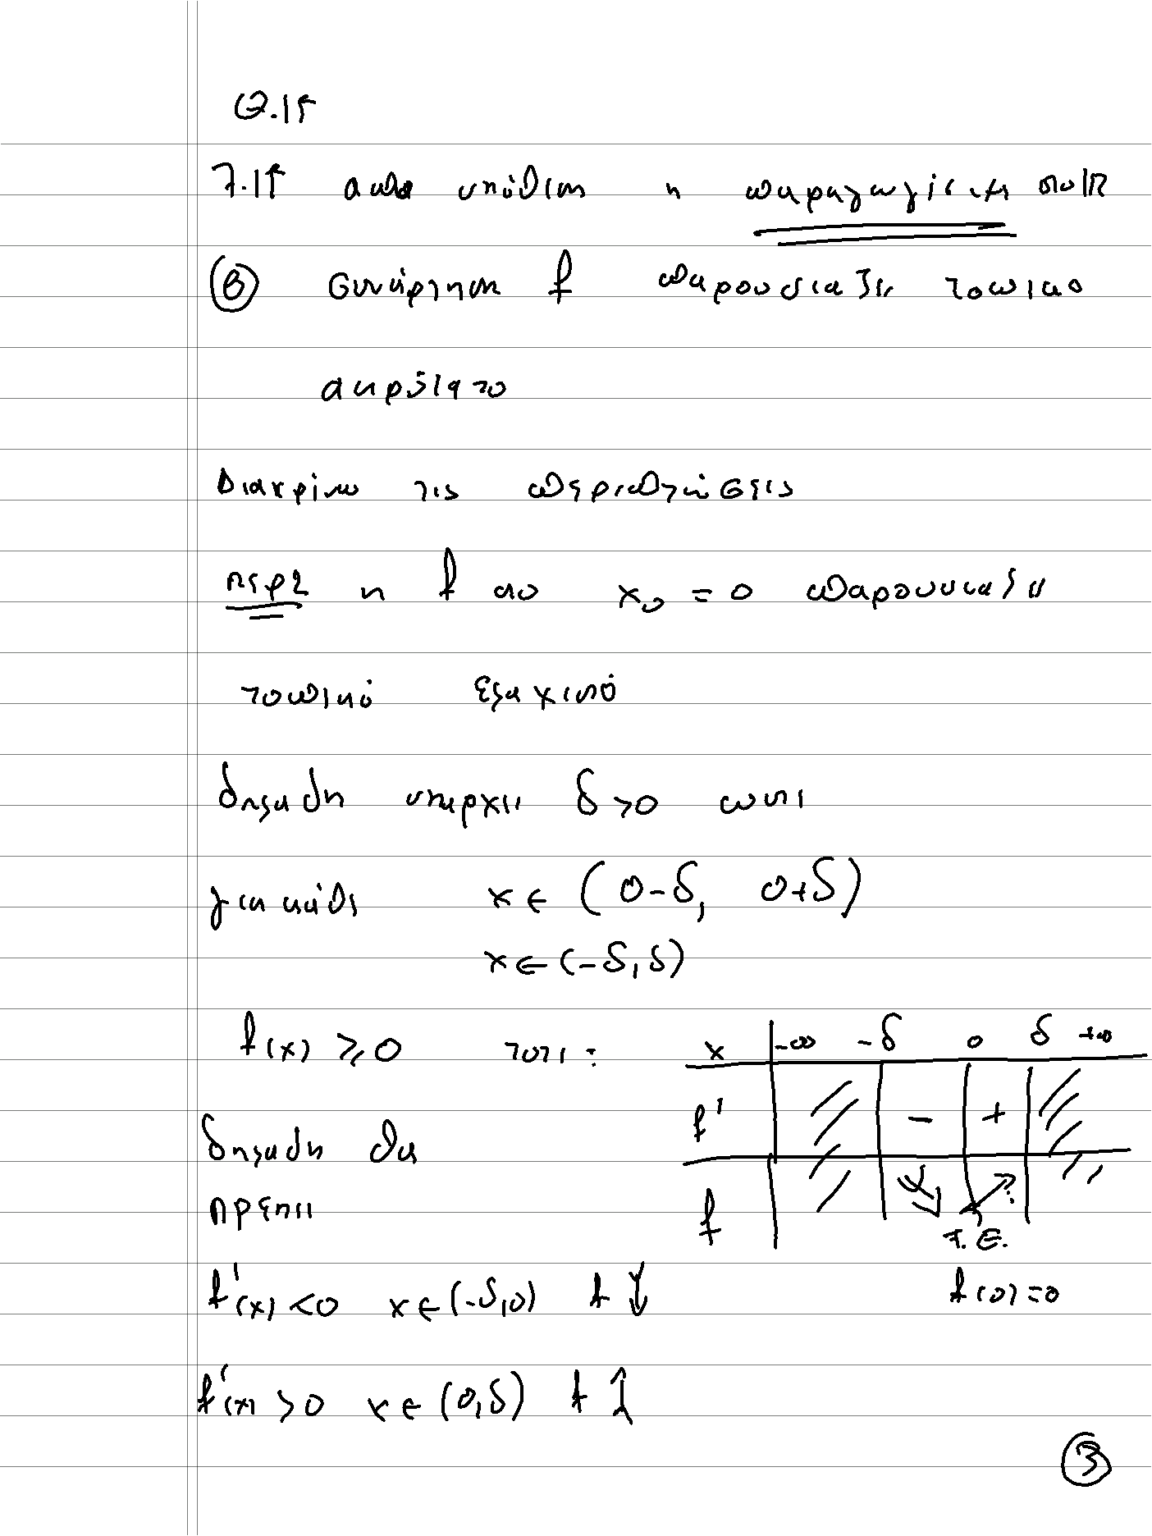 7.15 από υπόθεση η παραγωγίσιμη στο IR
(β) συνάρτηση f παρουσιάζει τοπικο
ακρότατο
Διακρίνω τις περιπτώσεις
περ1 η f στο x₀ = 0 παρουσιάζει
τοπικό ελαχιστό
δηλαδη υπαρχει δ>0 ωστε
για κάθε x∈ (0-δ, 0+δ)
x∈(-δ,δ)
f(x) ⩾ 0 τοτε :
x -∞ -δ 0 δ +∞
f' - +
δηλαδη θα
πρεπει
f
Τ.Ε.
f'(x) <0 x∈(-δ,0) f ↓
f(0)=0
f'(x) >0 x∈(0,δ) f ↑
3